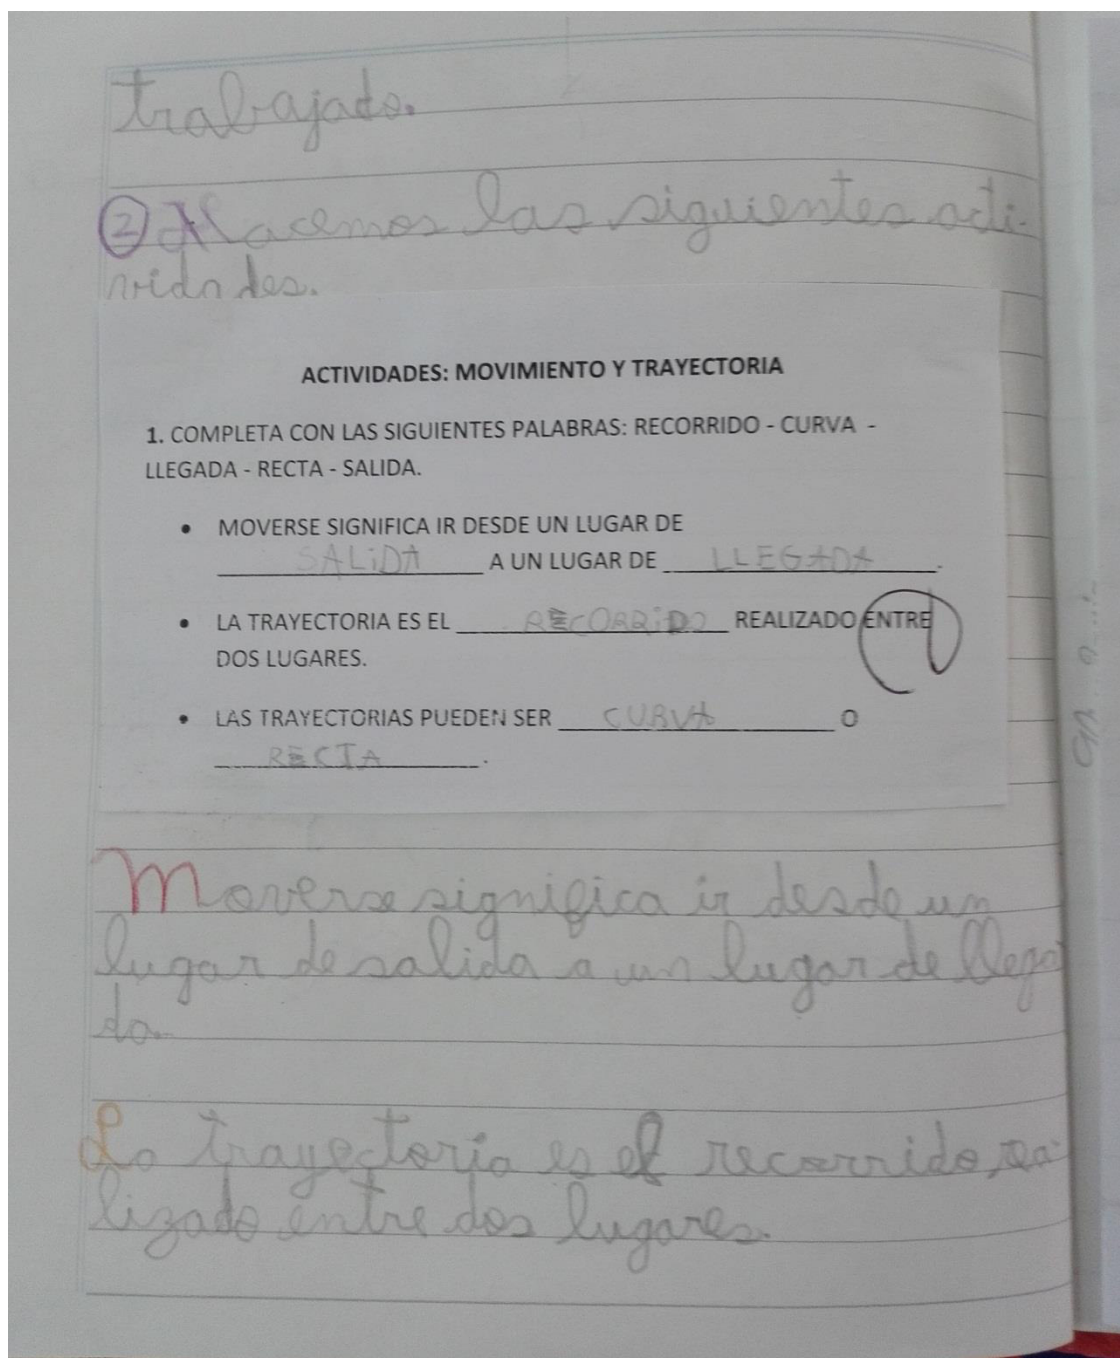 trabajado.
2 Hacemos las siguientes acti-
vidades.
ACTIVIDADES: MOVIMIENTO Y TRAYECTORIA
1. COMPLETA CON LAS SIGUIENTES PALABRAS: RECORRIDO - CURVA -
LLEGADA - RECTA - SALIDA.
• MOVERSE SIGNIFICA IR DESDE UN LUGAR DE
SALIDA A UN LUGAR DE LLEGADA.
• LA TRAYECTORIA ES EL RECORRIDO REALIZADO ENTRE
DOS LUGARES.
• LAS TRAYECTORIAS PUEDEN SER CURVA O
RECTA.
Moverse significa ir desde un
lugar de salida a un lugar de llega
da.
La trayectoria es el recorrido rea-
lizado entre dos lugares.